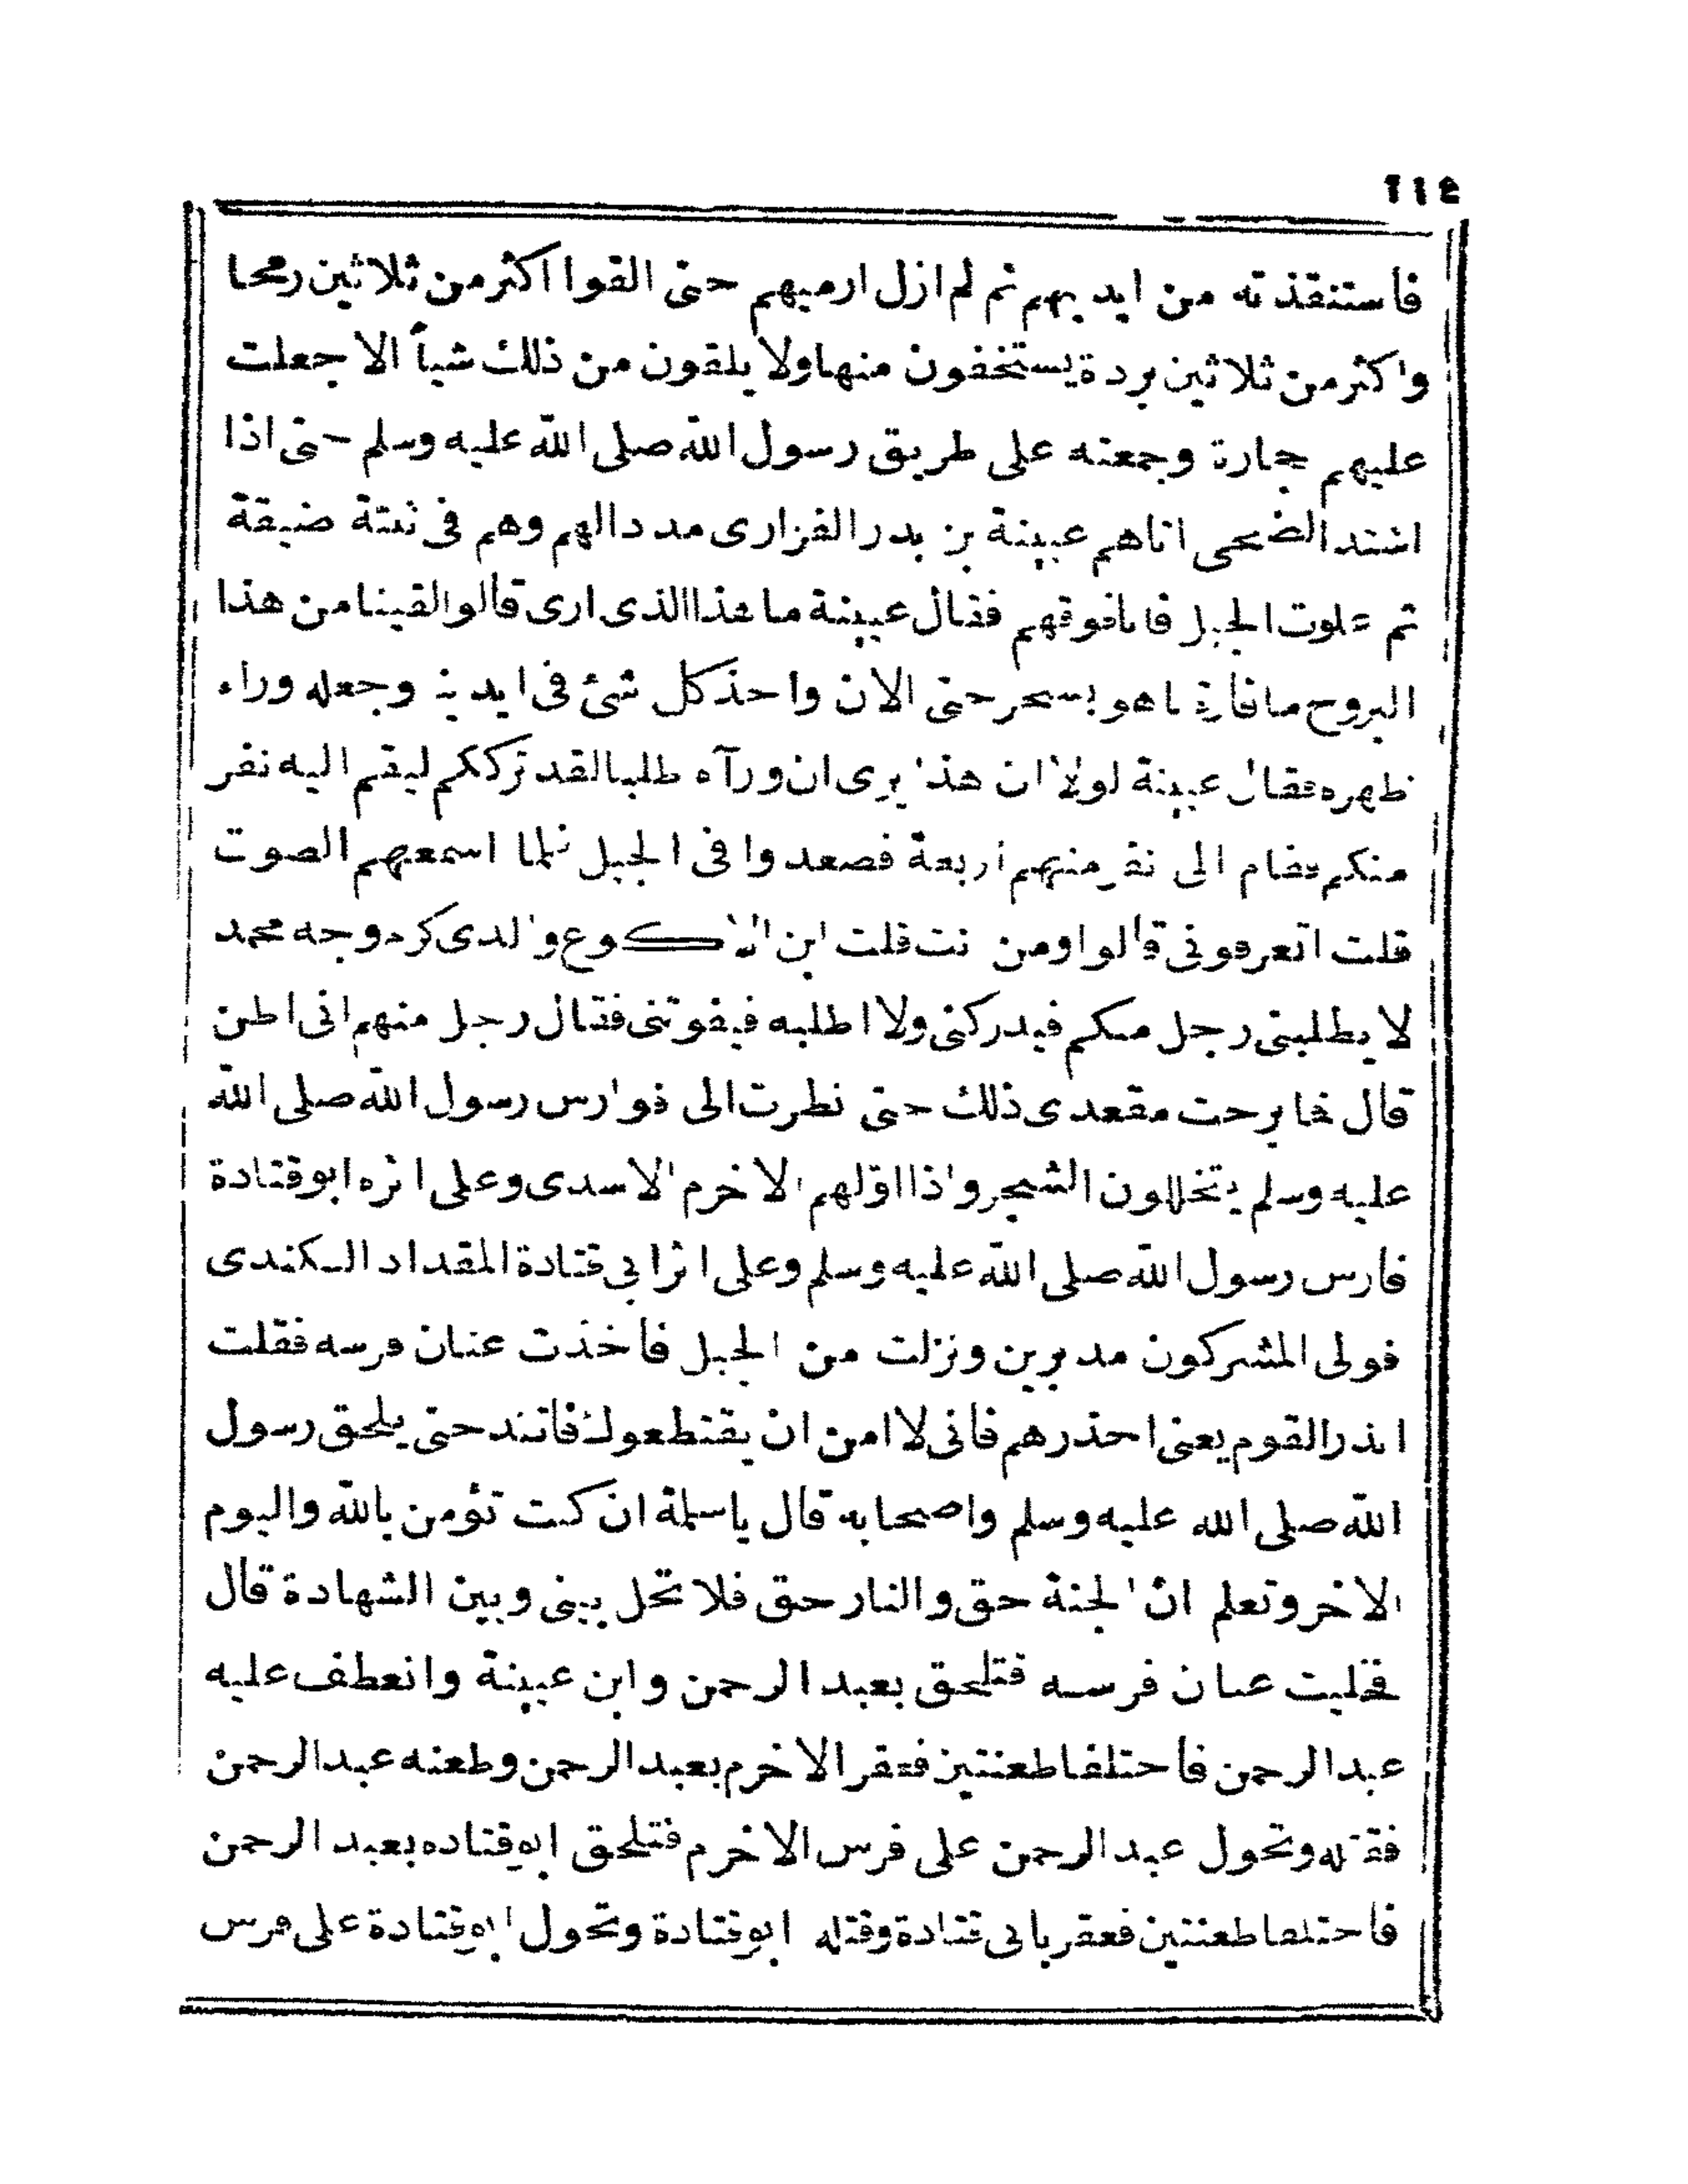 ٤١٦
فاستنقذته من ايديهم ثم لم ازل ارميهم حتى القوا اكثر من ثلاثين رمحا
واكثر من ثلاثين بردة يستخفون منها ولا يلقون من ذلك شيأ الا جعلت
عليهم حجارة وجمعته على طريق رسول الله صلى الله عليه وسلم حتى اذا
اشتد الضحى اتاهم عيينة بن بدر الفزارى مددا لهم وهم فى ثنية ضيقة
ثم علوت الجبل فانا فوقهم فقال عيينة ما هذا الذى ارى قالوا لقينا من هذا
البروح ما فارقنا هو بسحر حتى الان واخذ كل شئ فى ايدينا وجعله وراء
ظهره فقال عيينة لولا ان هذا يرى ان ورآه طلبا لقد ترككم ليقم اليه نفر
منكم فقام الى نفر منهم اربعة فصعدوا فى الجبل فلما اسمعهم الصوت
قلت اتعرفونى قالوا ومن انت قلت ابن الاكوع والذى كرم وجه محمد
لا يطلبنى رجل منكم فيدركنى ولا اطلبه فيفوتنى فقال رجل منهم انى اظن
قال فما برحت مقعدى ذلك حتى نظرت الى فوارس رسول الله صلى الله
عليه وسلم يتخللون الشجر واذا اولهم الاخرم الاسدى وعلى اثره ابو قتادة
فارس رسول الله صلى الله عليه وسلم وعلى اثر ابى قتادة المقداد الكندى
فولى المشركون مدبرين ونزلت من الجبل فاخذت عنان فرسه فقلت
انذر القوم يعنى احذرهم فانى لا امن ان يقتطعوك فاتئد حتى يلحق رسول
الله صلى الله عليه وسلم واصحابه قال ياسلمة ان كنت تؤمن بالله واليوم
الاخر وتعلم ان الجنة حق والنار حق فلا تحل بينى وبين الشهادة قال
فخليت عنان فرسه فتلحق بعبد الرحمن وابن عيينة وانعطف عليه
عبد الرحمن فاختلفا طعنتين فعقر الاخرم بعبد الرحمن وطعنه عبد الرحمن
فقتله وتحول عبد الرحمن على فرس الاخرم فتلحق ابو قتاده بعبد الرحمن
فاختلفا طعنتين فعقر بابى قتادة وقتله ابو قتادة وتحول ابو قتادة على فرس